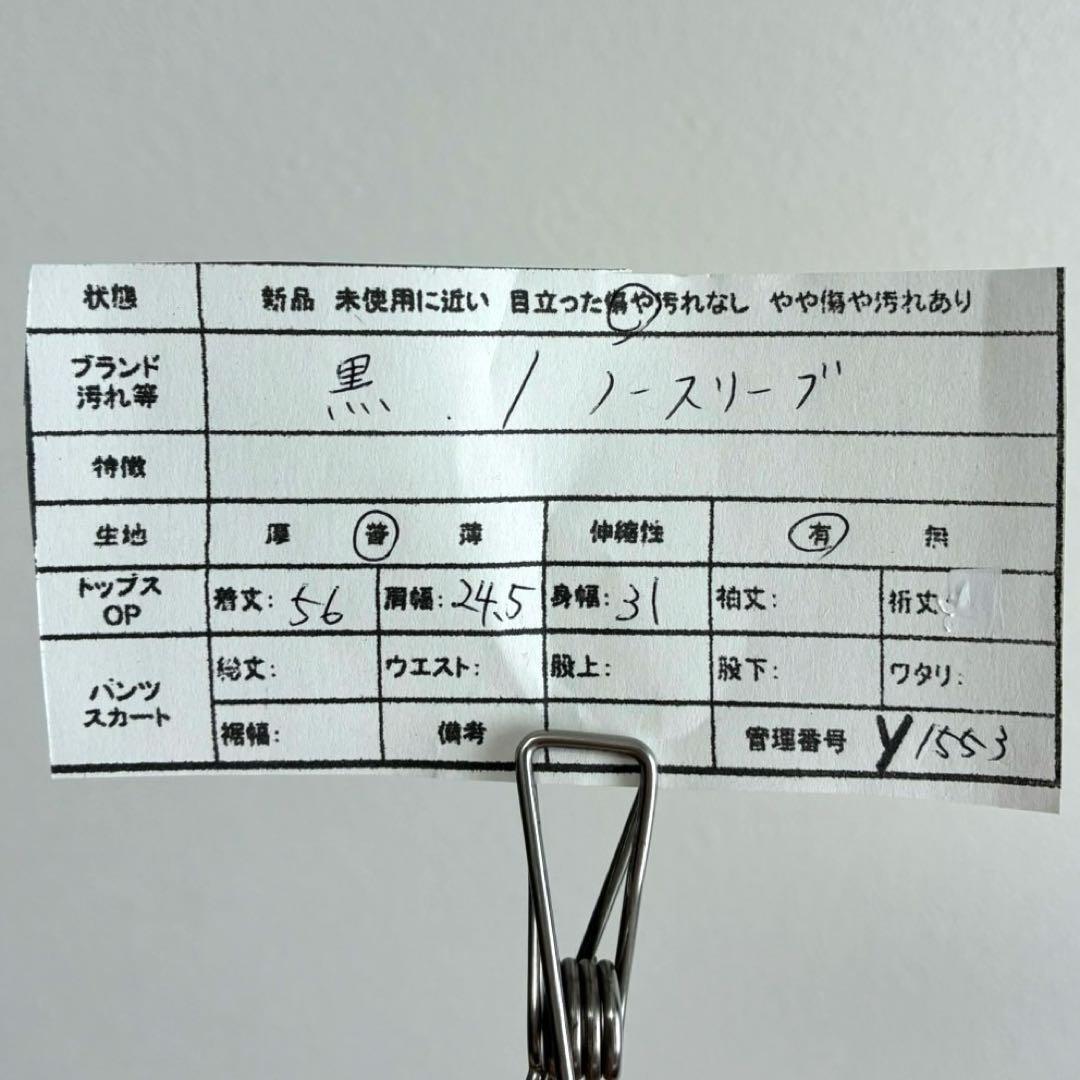 状態 新品 未使用に近い 目立った傷や汚れなし やや傷や汚れあり
ブランド
汚れ等
黒 . / ノースリーブ
特徴
生地 厚 普 薄 伸縮性 有 無
トップス
OP
着丈: 56 肩幅: 24.5 身幅: 31 袖丈: 裄丈:
パンツ
スカート
総丈: ウエスト: 股上: 股下: ワタリ:
裾幅: 備考 管理番号 y1553